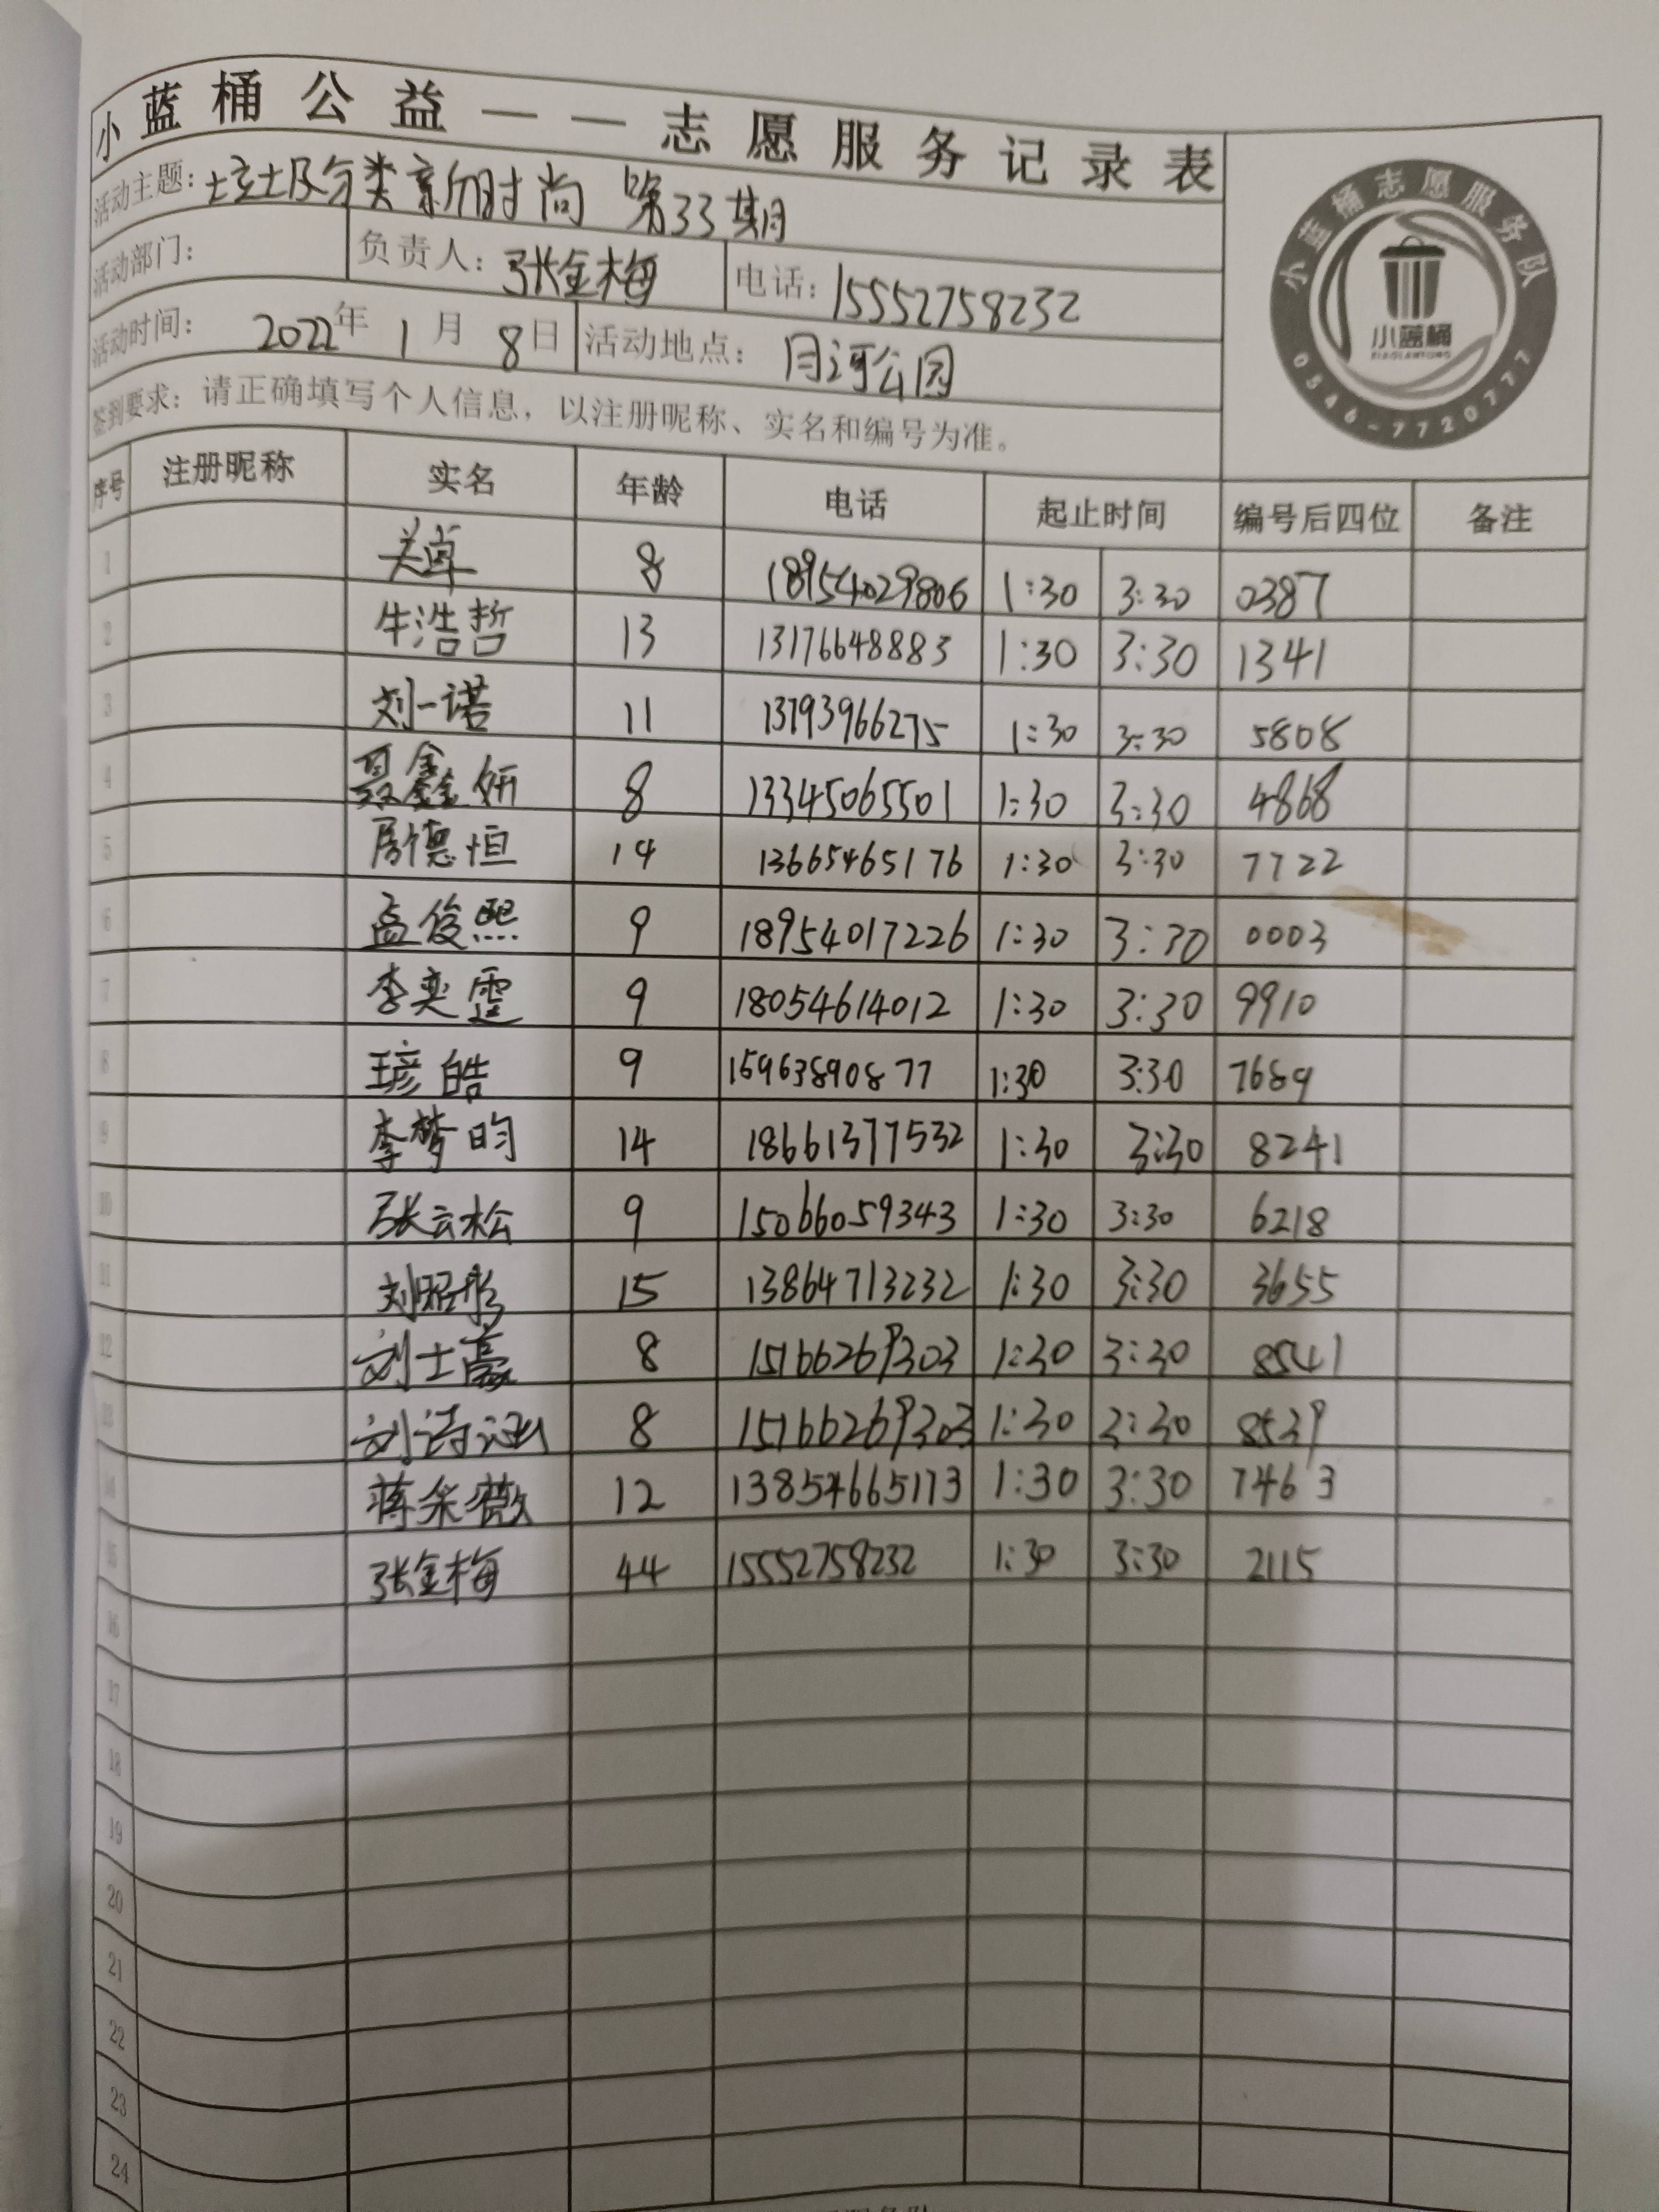 小蓝桶公益——志愿服务记录表
活动主题：垃圾分类新时尚 第33期
活动部门： 负责人：张金梅 电话：15552758232
活动时间： 2022年 1月 8日 活动地点：月河公园
签到要求：请正确填写个人信息，以注册昵称、实名和编号为准。
小蓝桶志愿服务队
小蓝桶
XIAOLANTONG
0546-7720777
序号 注册昵称 实名 年龄 电话 起止时间 编号后四位 备注
1 关卓 8 18954029806 1:30 3:30 0387
2 牛浩哲 13 13176648883 1:30 3:30 1341
3 刘一诺 11 13793966275 1:30 3:30 5808
4 聂鑫妍 8 13345065501 1:30 3:30 4868
5 周德恒 14 13665465176 1:30 3:30 7722
6 孟俊熙 9 18954017226 1:30 3:30 0003
7 李奕霆 9 18054614012 1:30 3:30 9910
8 王彦皓 9 15963890877 1:30 3:30 7689
9 李梦昀 14 18661377532 1:30 3:30 8241
10 张云松 9 15066059343 1:30 3:30 6218
11 刘昭彤 15 13864713232 1:30 3:30 3655
12 刘士豪 8 15166269303 1:30 3:30 8541
13 刘诗涵 8 15166269303 1:30 3:30 8539
14 蒋采薇 12 13854665173 1:30 3:30 7463
15 张金梅 44 15552758232 1:30 3:30 2115
16
17
18
19
20
21
22
23
24